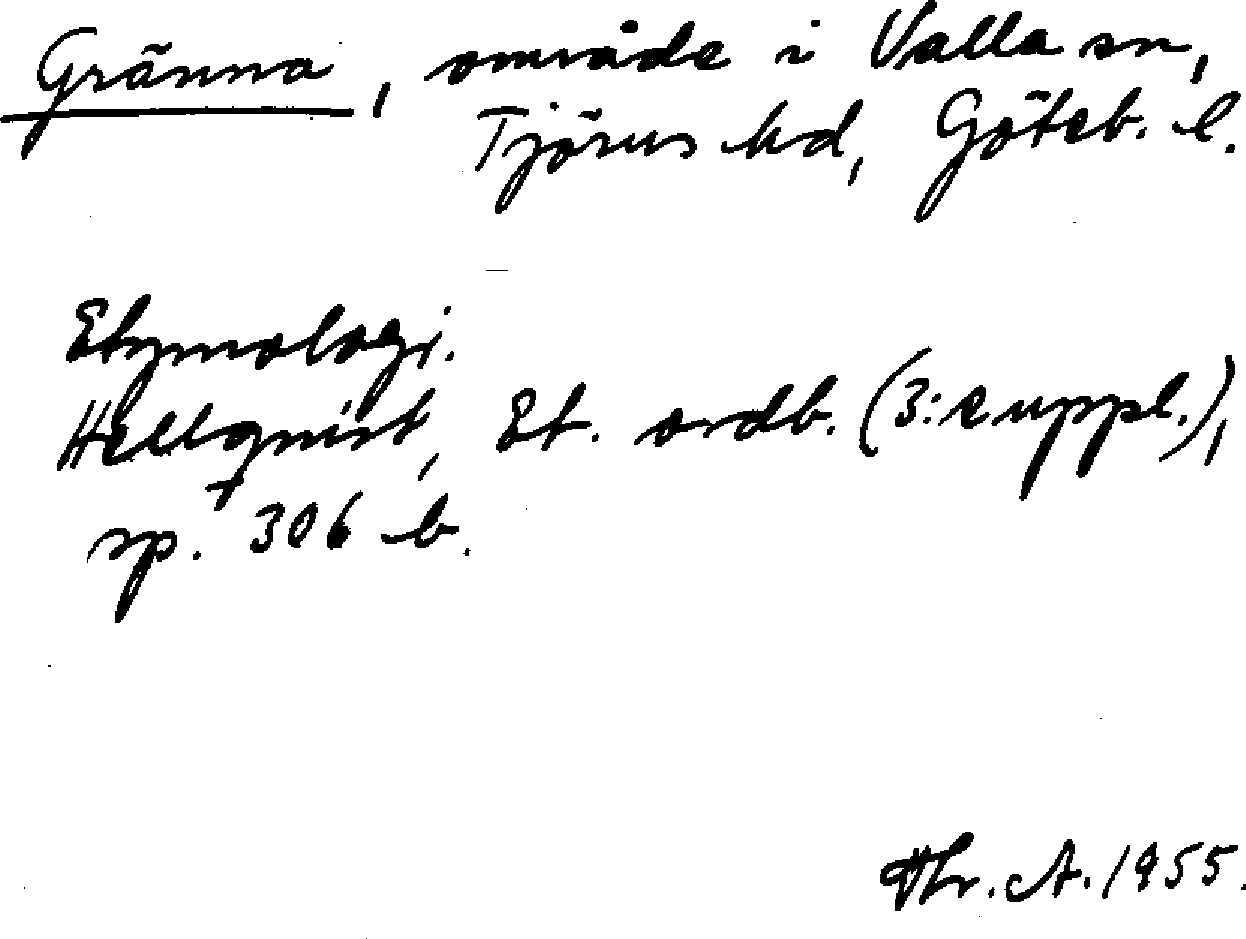 Gränna, område i Valla sn,
Tjörns hd, Göteb. l.
Etymologi.
Hellquist, Et. ordb. (3:e uppl.),
sp. 306 b.
Hr. A. 1955.